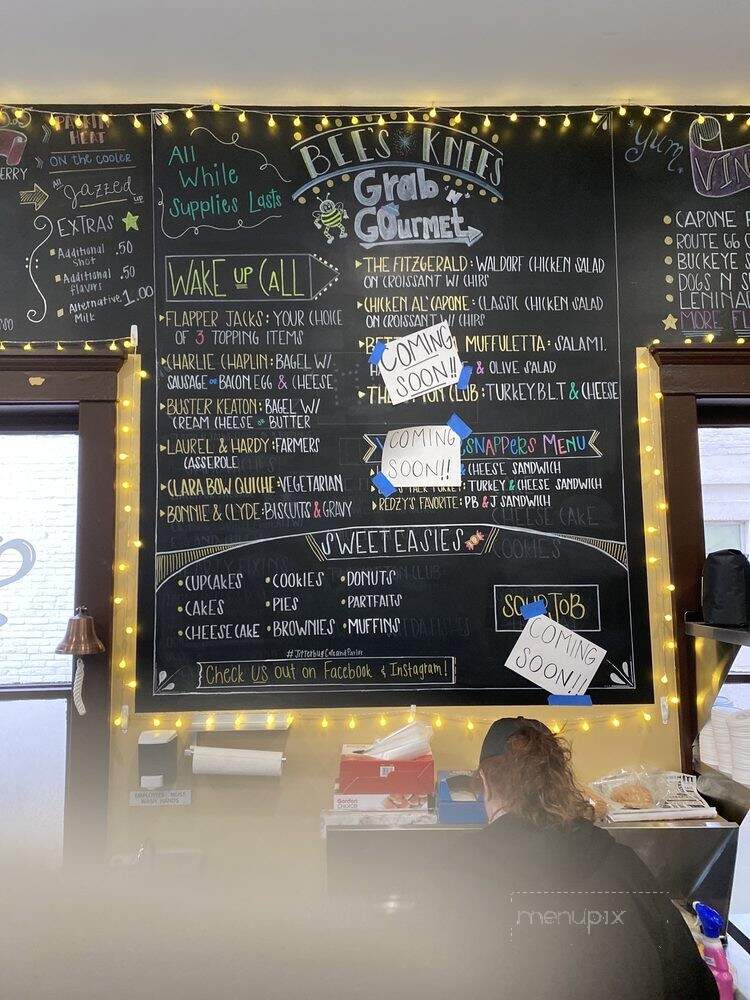 HEAT
ON THE COOLER
All Jazzed up
EXTRAS
Additional Shot .50
Additional flavors .50
Alternative Milk 1.00
All
While
Supplies Lasts
BEE'S KNEES
Grab 'N'
GOurmet
WAKE UP CALL
FLAPPER JACKS: YOUR CHOICE
OF 3 TOPPING ITEMS
CHARLIE CHAPLIN: BAGEL W/
SAUSAGE OR BACON, EGG & CHEESE
BUSTER KEATON: BAGEL W/
CREAM CHEESE OR BUTTER
LAUREL & HARDY: FARMERS
CASSEROLE
CLARA BOW QUICHE: VEGETARIAN
BONNIE & CLYDE: BISCUITS & GRAVY
THE FITZGERALD: WALDORF CHICKEN SALAD
ON CROISSANT W/ CHIPS
CHICKEN AL'CAPONE: CLASSIC CHICKEN SALAD
ON CROISSANT W/ CHIPS
MUFFULETTA: SALAMI,
& OLIVE SALAD
CLUB: TURKEY, B.L.T & CHEESE
COMING
SOON!!
COMING
SOON!!
SNAPPERS MENU
& CHEESE SANDWICH
TURKEY & CHEESE SANDWICH
REDZY'S FAVORITE: PB & J SANDWICH
SWEETEASIES
CUPCAKES
CAKES
CHEESECAKE
COOKIES
PIES
BROWNIES
DONUTS
PARTFAITS
MUFFINS
SOUP JOB
COMING
SOON!!
#JitterbugCafeandParlor
Check us out on Facebook & Instagram!
yum
VIN
CAPONE
ROUTE 66
BUCKEYE
DOGS N
MORE
EMPLOYEES MUST
WASH HANDS
Gordon
CHOICE
menupix